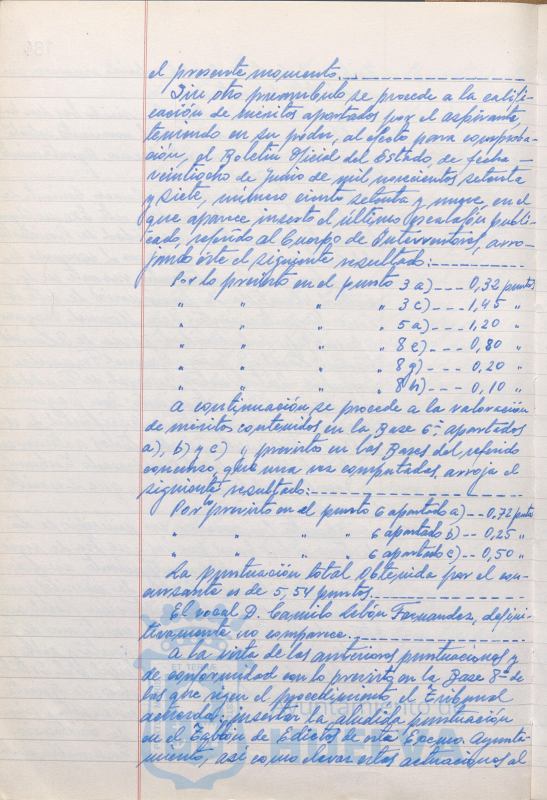 el presente momento.
Sin otro preambulo, se procede a la califi-
cación de meritos aportados por el aspirante,
teniendo en su poder, al efecto para comproba-
ción, el Boletin Oficial del Estado, de fecha
veintiocho de Junio de mil novecientos setenta
y siete, número ciento setenta y nueve, en el
que aparece inserto el último Escalafón publi-
cado, referido al Cuerpo de Interventores, arro-
jando éste el siguiente resultado:
Por lo previsto en el punto 3 a) --- 0,32 puntos
" " " " 3 c) --- 1,45 "
" " " " 5 a) --- 1,20 "
" " " " 8 e) --- 0,80 "
" " " " 8 g) --- 0,20 "
" " " " 8 h) --- 0,10 "
A continuación se procede a la valoración
de meritos contenidos en la Base 6ª apartados
a), b) y c) " previsto en las Bases del referido
concurso, que una vez computadas, arroja el
siguiente resultado:
Por lo previsto en el punto 6 apartado a) -- 0,72 puntos
" " " " 6 apartado b) -- 0,25 "
" " " " 6 apartado c) -- 0,50 "
La puntuación total obtenida por el con-
cursante es de 5,54 puntos.
El vocal D. Camilo Lebón Fernandez, defini-
tivamente no comparece.
A la vista de las anteriores puntuaciones y
de conformidad con lo previsto en la Base 8ª de
las que rigen el procedimiento, el Tribunal
acordó: insertar la aludida puntuación
en el Tablón de Edictos de este Excmo. Ayunta-
miento, así como elevar estas actuaciones al